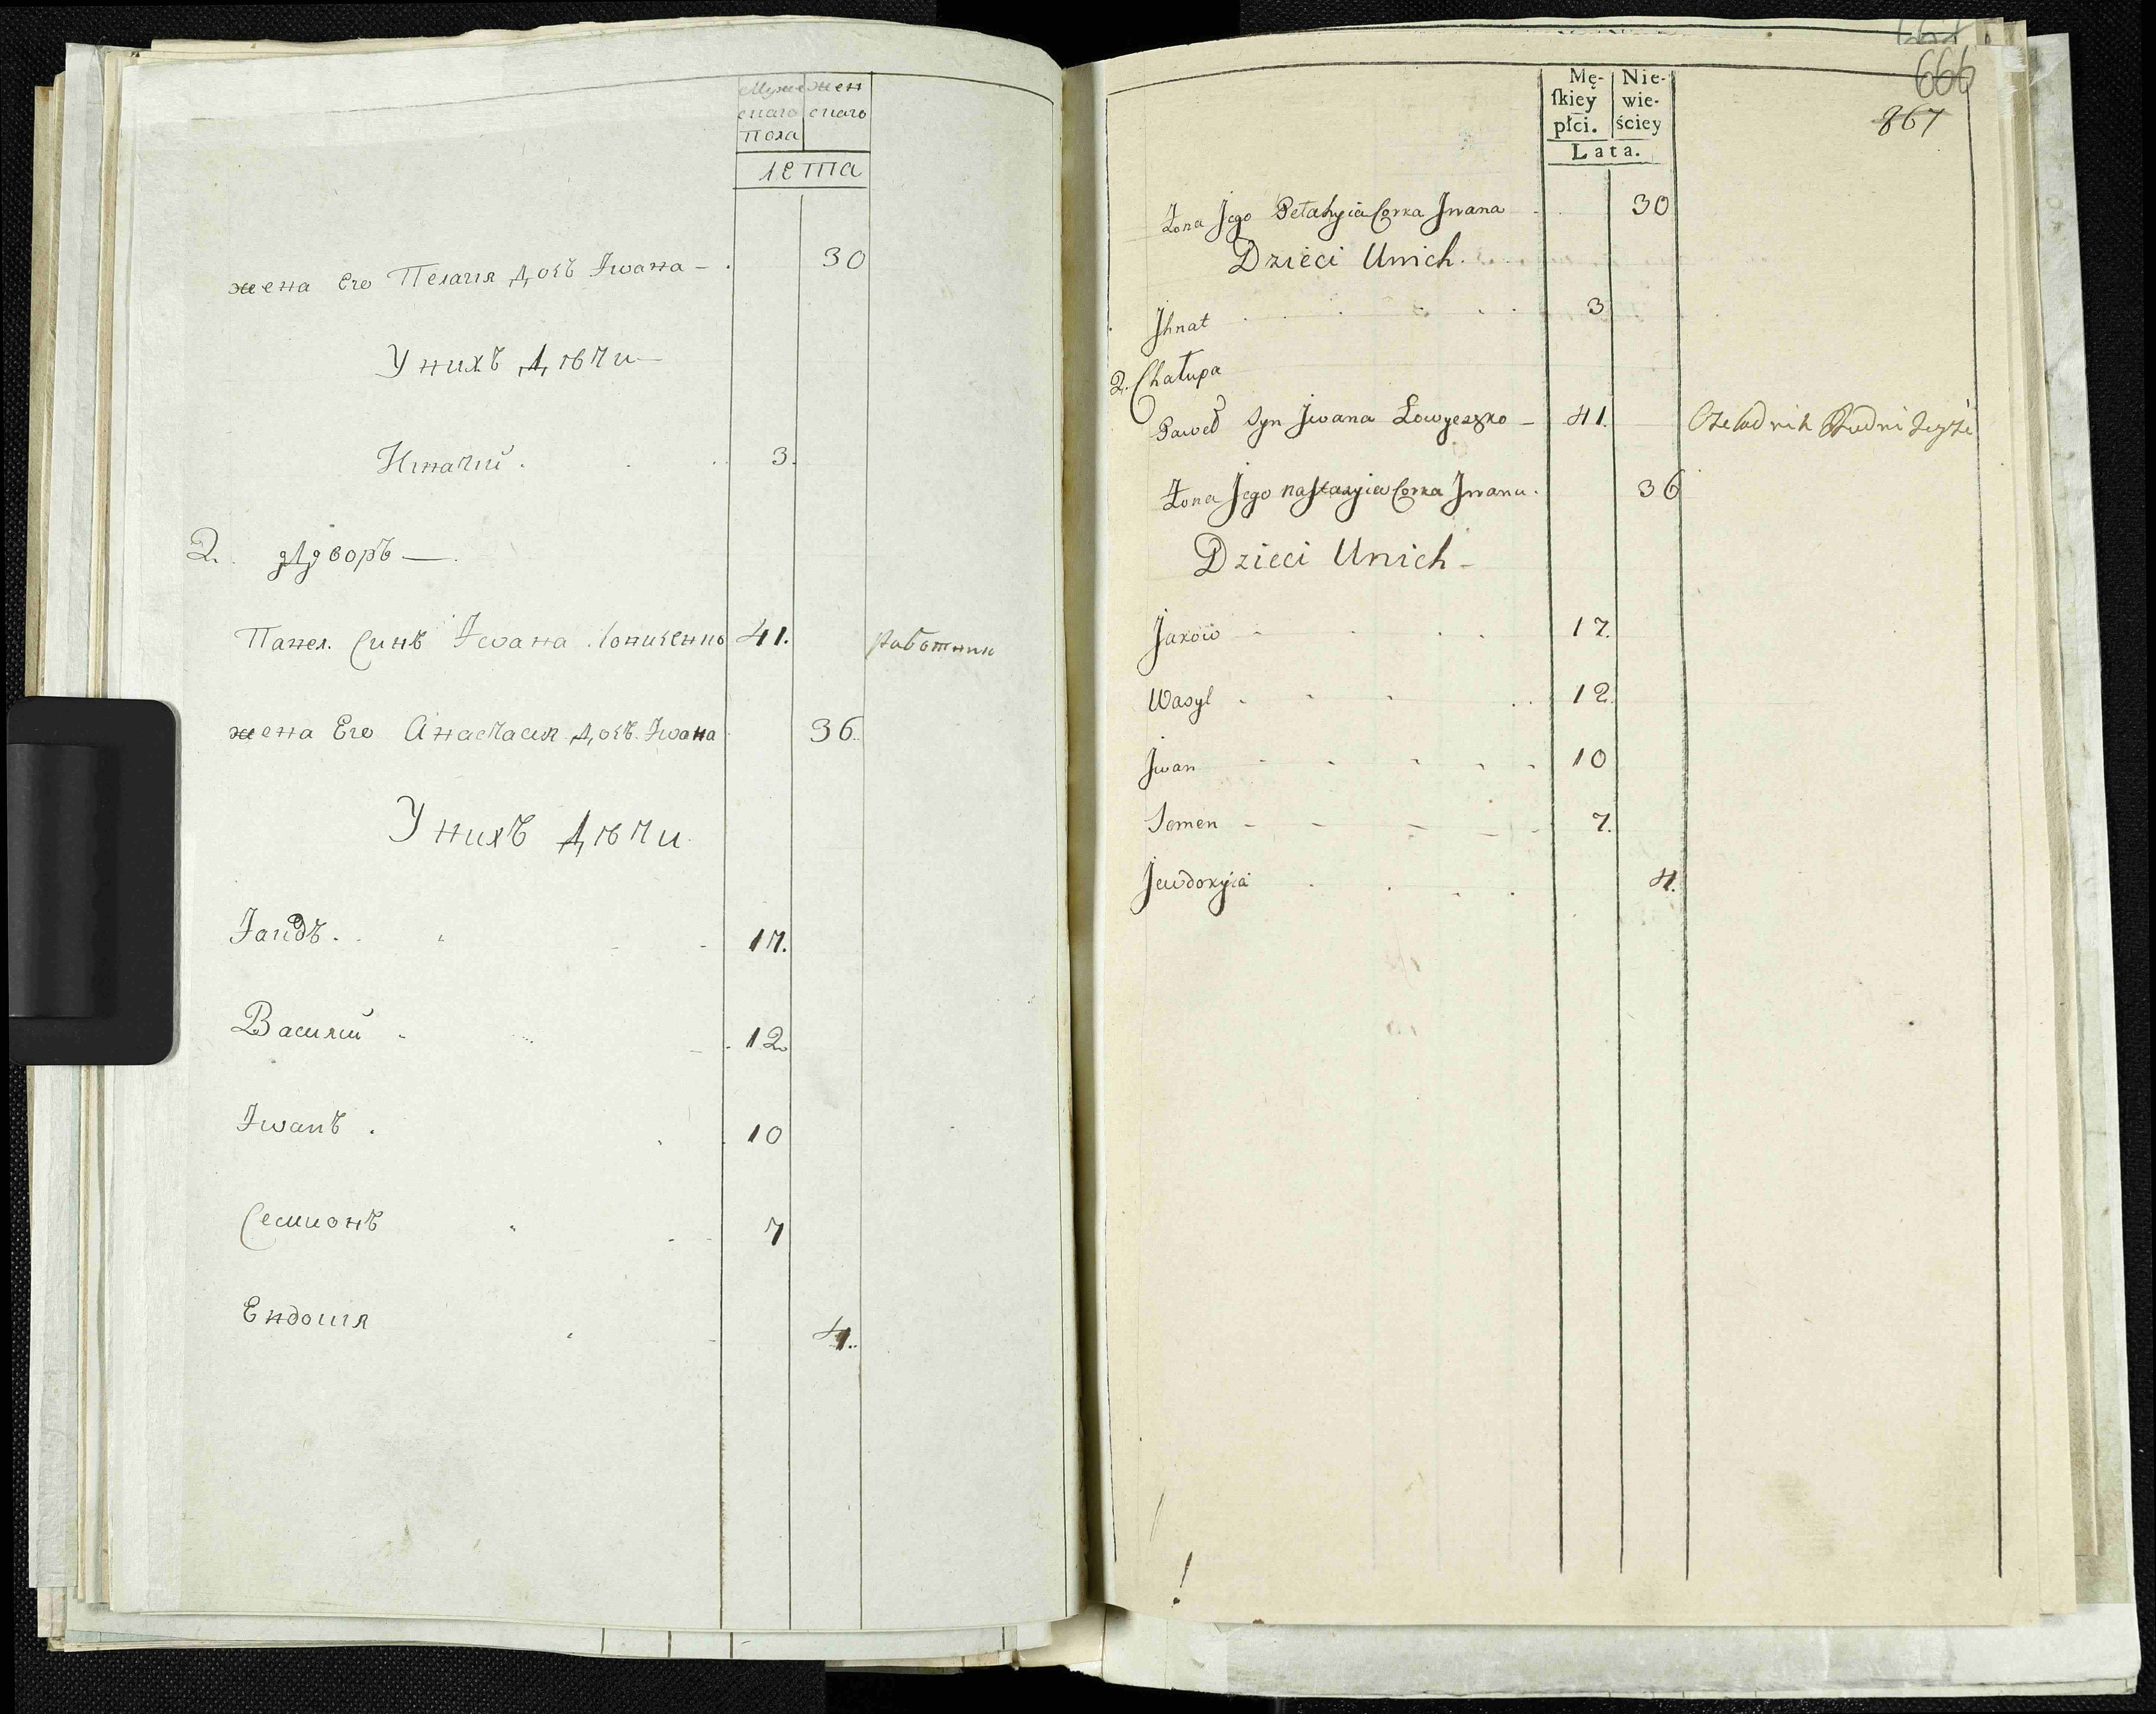 Мужескаго пола
женскаго
лета
жена Его Пелагия дочь Iwана — 30
У нихъ дѣти —
Игнатий . 3.
2. Дворъ —
Павел. Синъ Iwана 41. работник
жена Его Анастасия дочъ Iwана 36.
У нихъ дѣти.
Iаковъ . 17.
Василий . 12.
Iwанъ . 10
Семионъ 7
Евдокия 4.
666
867
Mę-
ſkiey
płci.
Nie-
wie-
ściey
Lata.
Żona Jego Pełahyia Corka Jwana 30
Dzieci Unich.
Jhnat 3
2. Chałupa
Paweł Syn Jwana Łowyeszko – 41.
Żona Jego Nastasyia Corka Jwana. 36
Dzieci Unich –
Jakow 17.
Wasyl 12.
Jwan 10
Semen 7.
Jewdokyia 4.